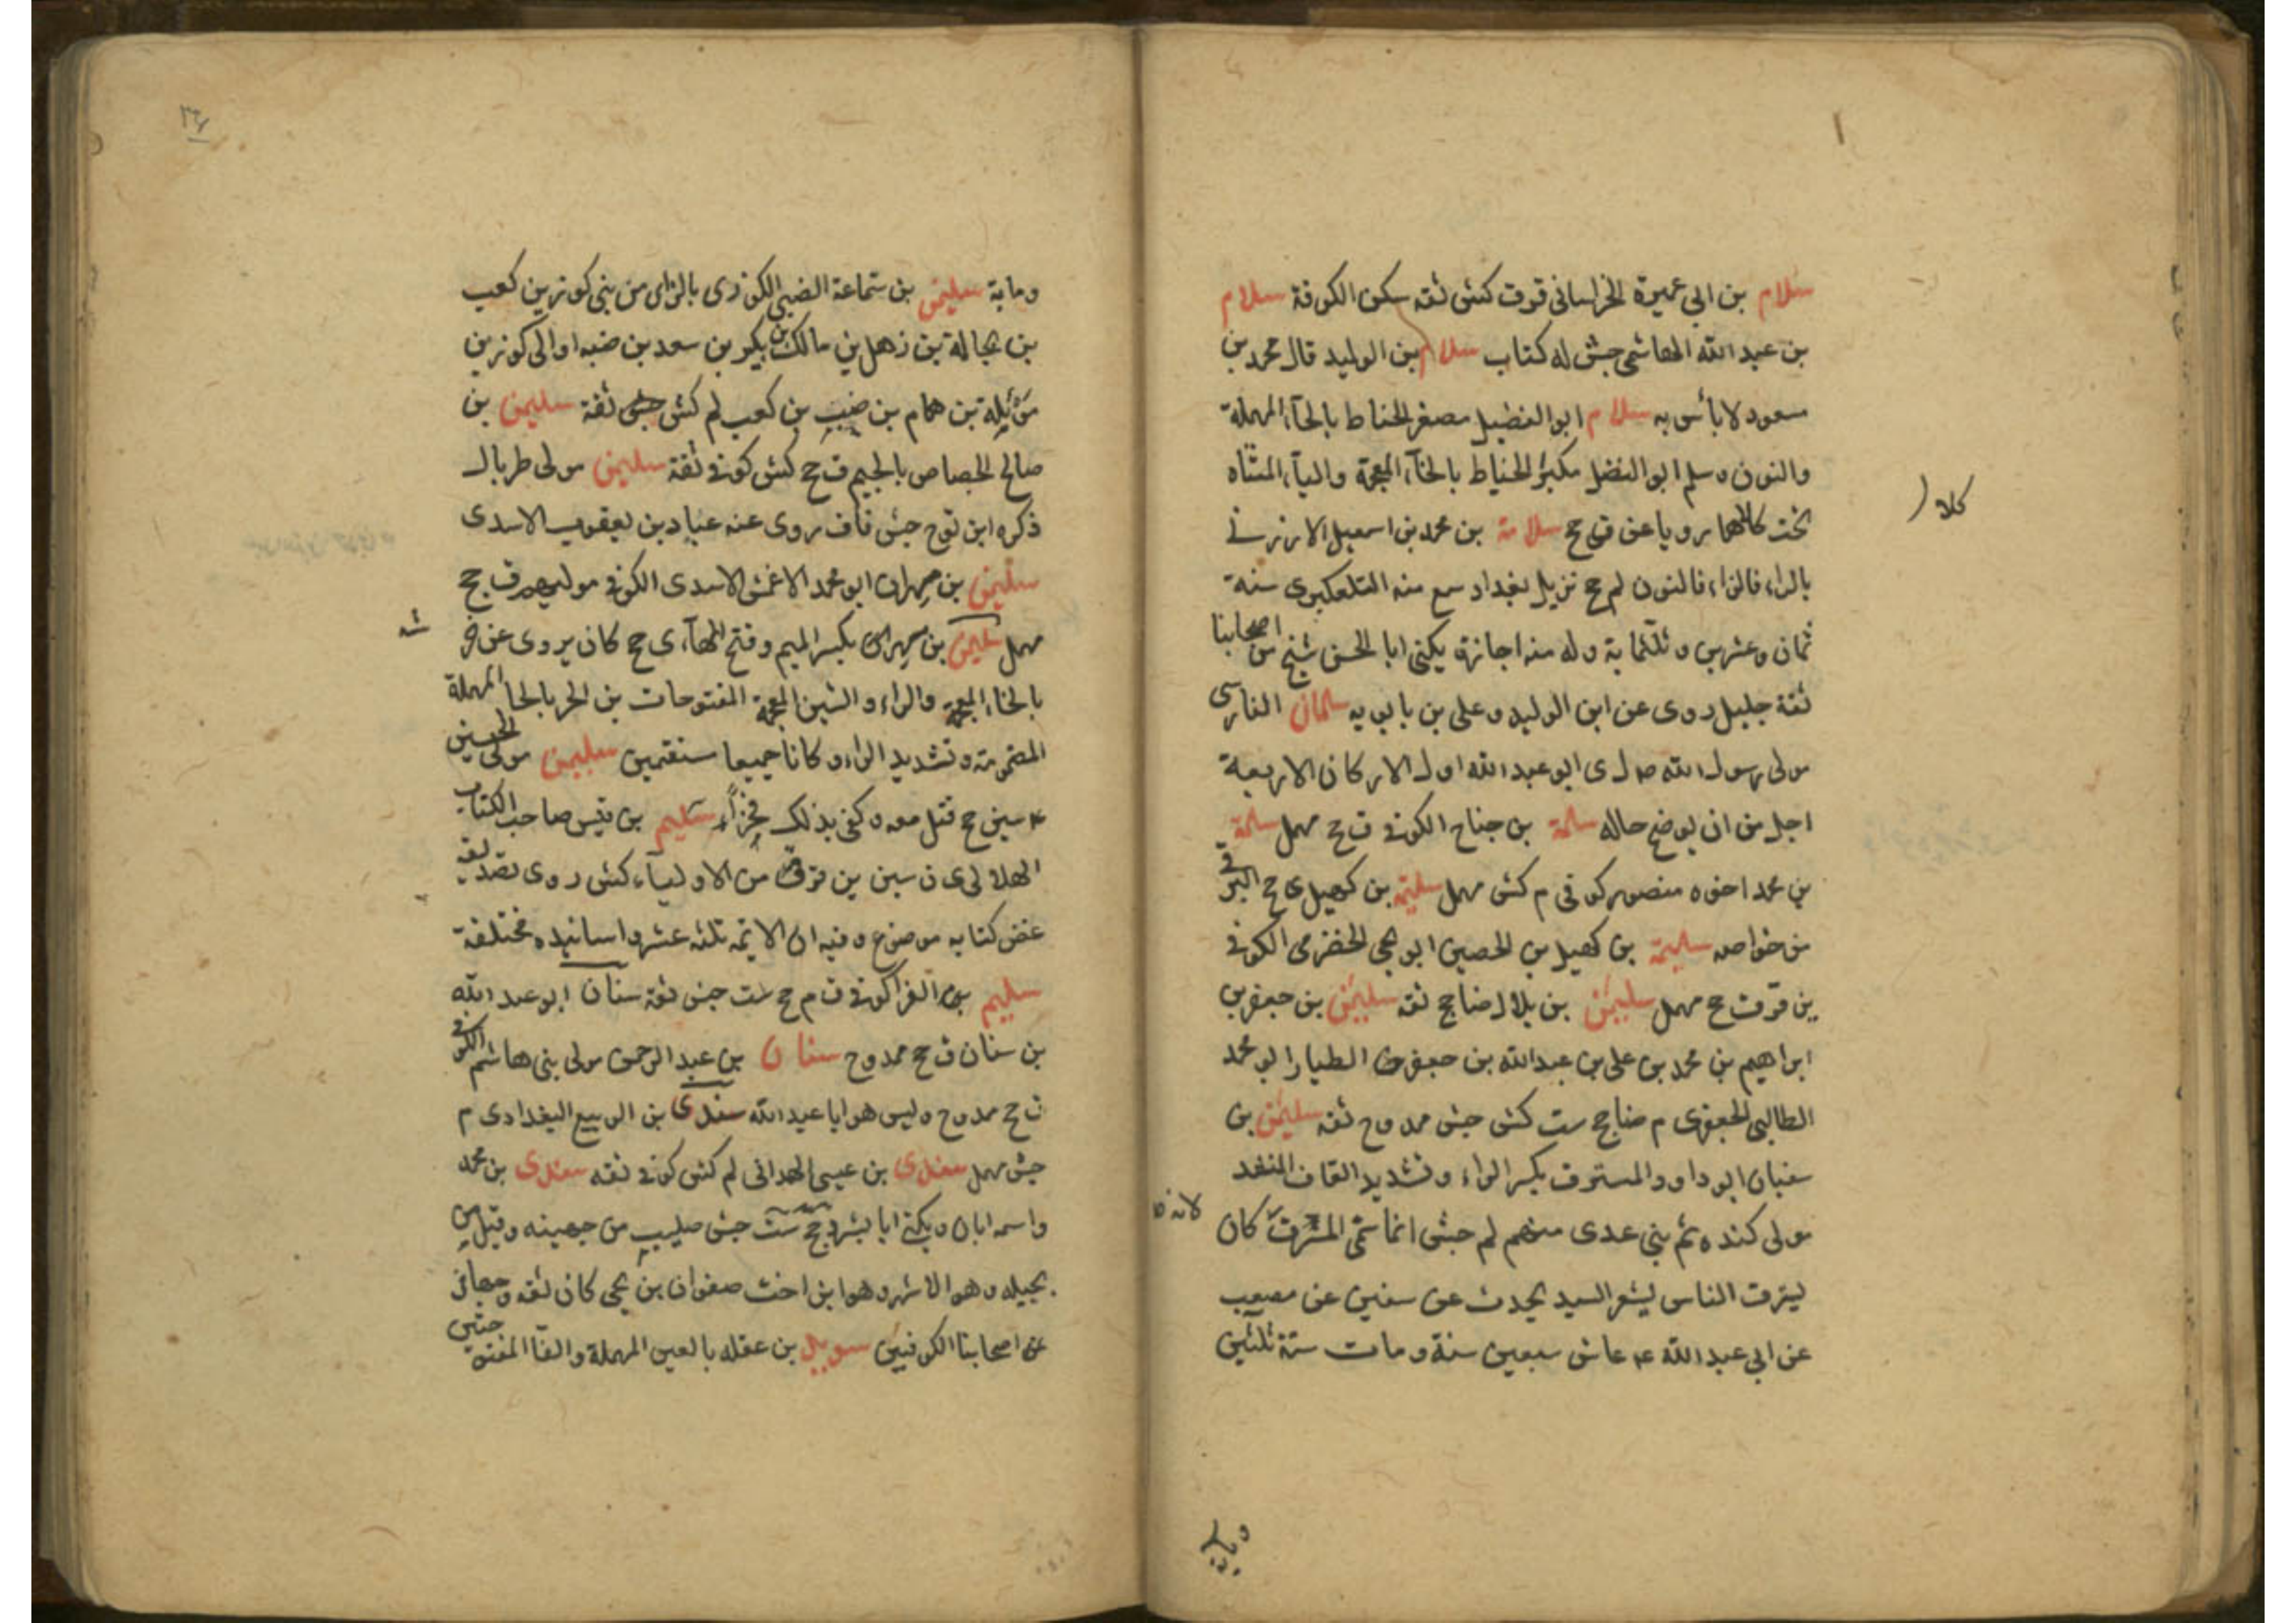 سلام بن ابي عميرة الخراساني قر ق كش ثقه سكن الكوفة سلام
بن عبد الله الهاشمي جش له كتاب سلام بن الوليد قال محمد بن
مسعود لا بأس به سلام ابو الفضيل مصغر الحناط بالحاء المهملة
والنون وسلم ابو الفضل مكبر الخياط بالخاء المعجمة والياء المثناه
تحت كلاهما رويا عن ق جخ سلامة بن محمد بن اسمعيل الارزني
بالراء فالزاء فالنون لم جخ نزيل بغداد سمع منه التلعكبري سنة
ثمان وعشرين وثلثماية وله منه اجازة يكنى ابا الحسن شيخ من اصحابنا
ثقة جليل روى عن ابن الوليد وعلي بن بابويه سلمان الفارسي
مولى رسول الله ص ل ى ابو عبد الله اول الاركان الاربعة
اجل من ان يوضح حاله سلمة بن جناح الكوفي ق جخ مهمل سلمة
بن محمد اخوه منصور كوفي م كش مهمل سلمة بن كهيل ى جخ البرقي
من خواصه سلمة بن كهيل بن الحصين ابو يحيى الحضرمي الكوفي
ين قر ق جخ مهمل سليمن بن بلال ضا جخ ثقه سليمن بن جعفر بن
ابراهيم بن محمد بن علي بن عبد الله بن جعفر الطيار ابو محمد
الطالبي الجعفري م ضا جخ ست كش جش ممدوح ثقه سليمن بن
سفيان ابو داود المسترق بكسر الراء وتشديد القاف المنشد
مولى كنده ثم بني عدى منهم لم جش انما سمى المسترق كان
لانه
يسترق الناس بشعر السيد يحدث عن سفين عن مصعب
عن ابي عبد الله ع عاش سبعين سنة ومات سنة ثلثين
وماية
كلا
وماية سليمن بن سماعة الضبي الكوزى بالزاى من بني كوز بن كعب
بن بجالة بن ذهل بن مالك بن بكر بن سعد بن ضبه او الى كوز بن
موئلة بن همام بن ضب بن كعب لم كش جش ثقة سليمن بن
صالح الجصاص بالجيم ق جخ كش كوفي ثقة سليمن مولى طربال
ذكره ابن نوح جش قاف روى عنه عباد بن يعقوب الاسدى
سليمن بن مهران ابو محمد الاعمش الاسدى الكوفي مولاهم ق جخ
مهمل سليمن بن مسهر بكسر الميم وفتح الهاء ى جخ كان يروى عن خرشة
بالخاء المعجمة والراء والشين المعجمة المفتوحات بن الحر بالحا المهملة
المضمومة وتشديد الراء وكانا جميعا مستقيمين سليمن مولى الحسين
ع سين جخ قتل معه وكفى بذلك فخرا سليم بن قيس صاحب الكتاب
الهلالى ى ن سين ين قر ق من الاولياء كش روى تصديقه
غض كتابه موضوع وفيه ان الايمه ثلثه عشر واسانيده مختلفة
سليم بن الفرا كوفي ق م جخ ست جش ثقة سنان ابو عبد الله
بن سنان ق جخ ممدوح سنان بن عبد الرحمن مولى بني هاشم الكوفي
ق جخ ممدوح وليس هو ابا عبد الله سندى بن الربيع البغدادى م
جش مهمل سندى بن عيسى الهمداني لم كش كوفي ثقه سندى بن محمد
واسمه ابان ويكنى ابا بشر دى جخ ست جش صليب من جهينه وقيل من
بجيله وهو الاشهر وهو ابن اخت صفوان بن يحيى كان ثقه وجها في
من اصحابنا الكوفيين سويد بن عفله بالعين المهملة والفا المفتوحتين